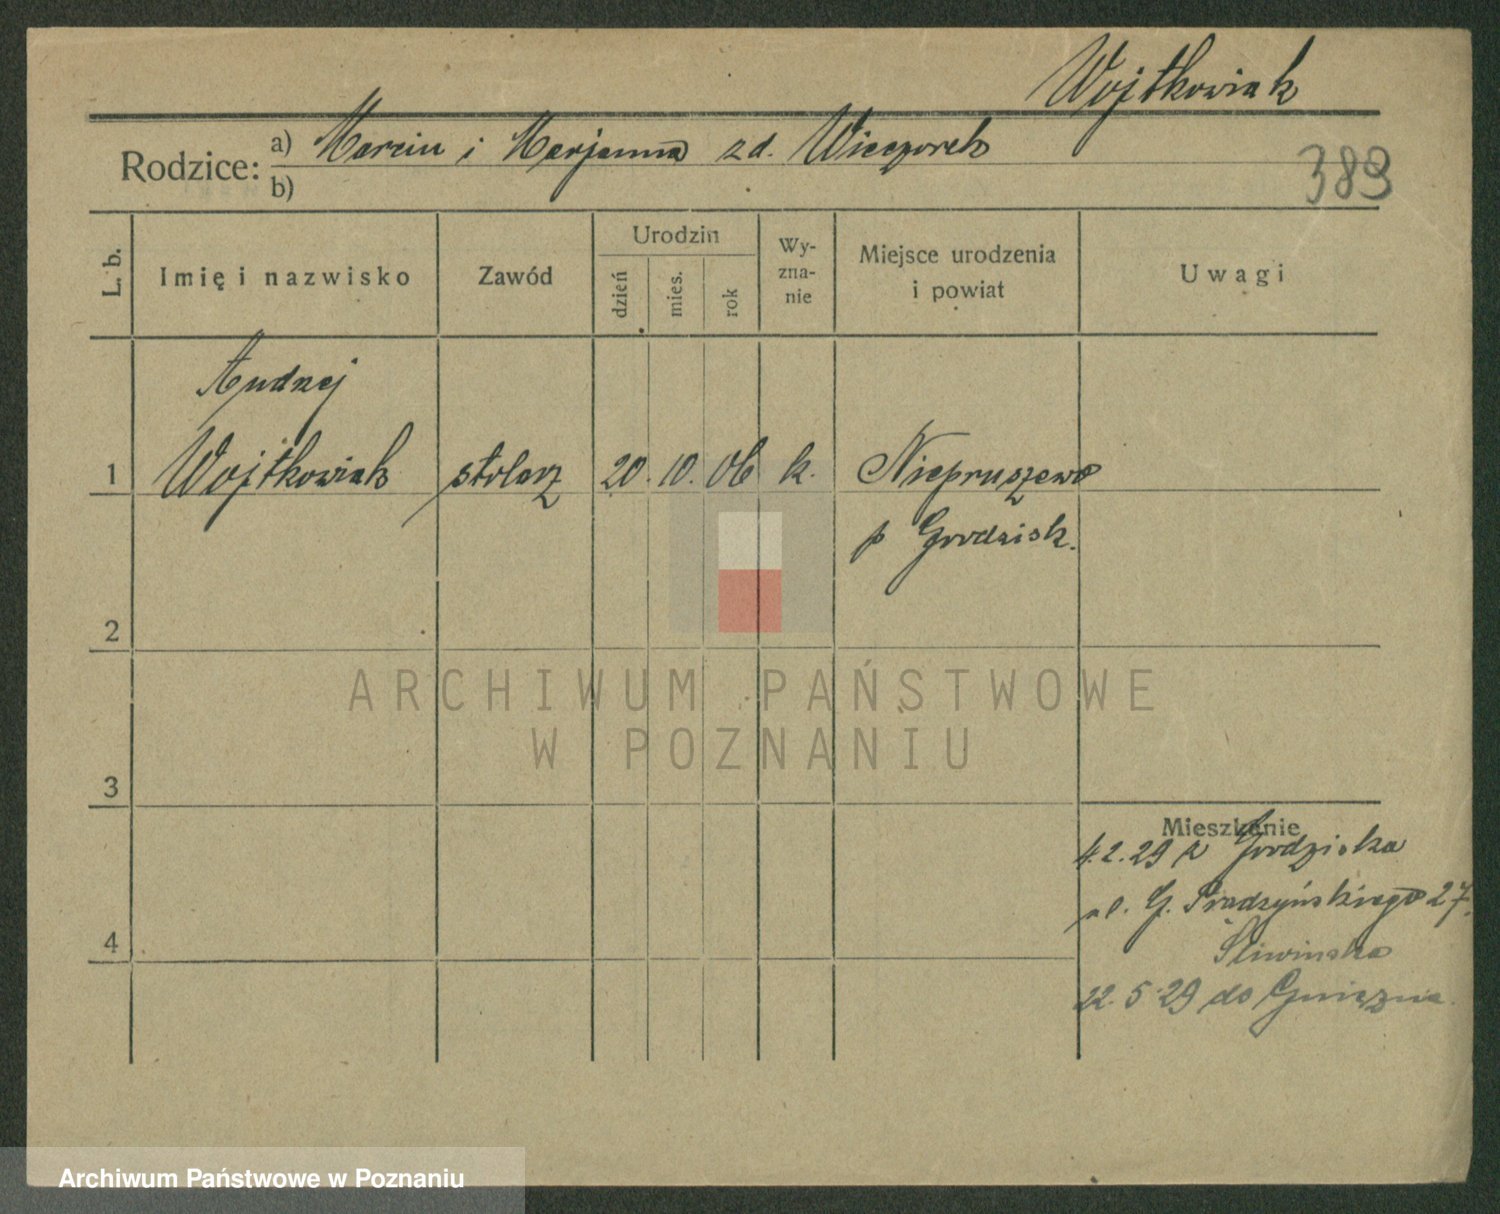 Wojtkowiak
Rodzice: a) Marcin i Marjanna zd. Wieczorek
b)
389
L. b.
Imię i nazwisko
Zawód
Urodzin
dzień
mies.
rok
Wy-
zna-
nie
Miejsce urodzenia
i powiat
Uwagi
Andrzej
1 Wojtkowiak stolarz 20. 10. 06 k. Niepruszewo
p Grodzisk.
2
3
4
Mieszkanie
4.2.29 z Grodziska
ul. G. Prądzyńskiego 27.
Śliwińska
22.5.29 do Gniezna.
ARCHIWUM PAŃSTWOWE
W POZNANIU
Archiwum Państwowe w Poznaniu